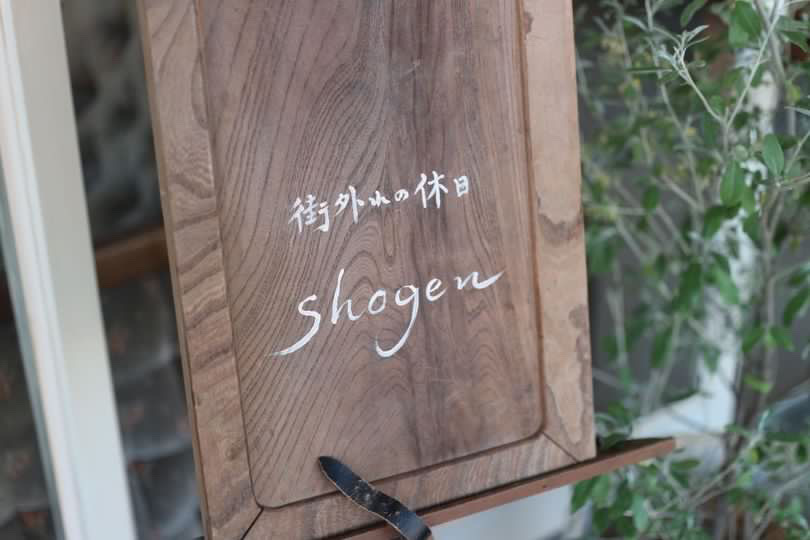 街外れの休日
shogen